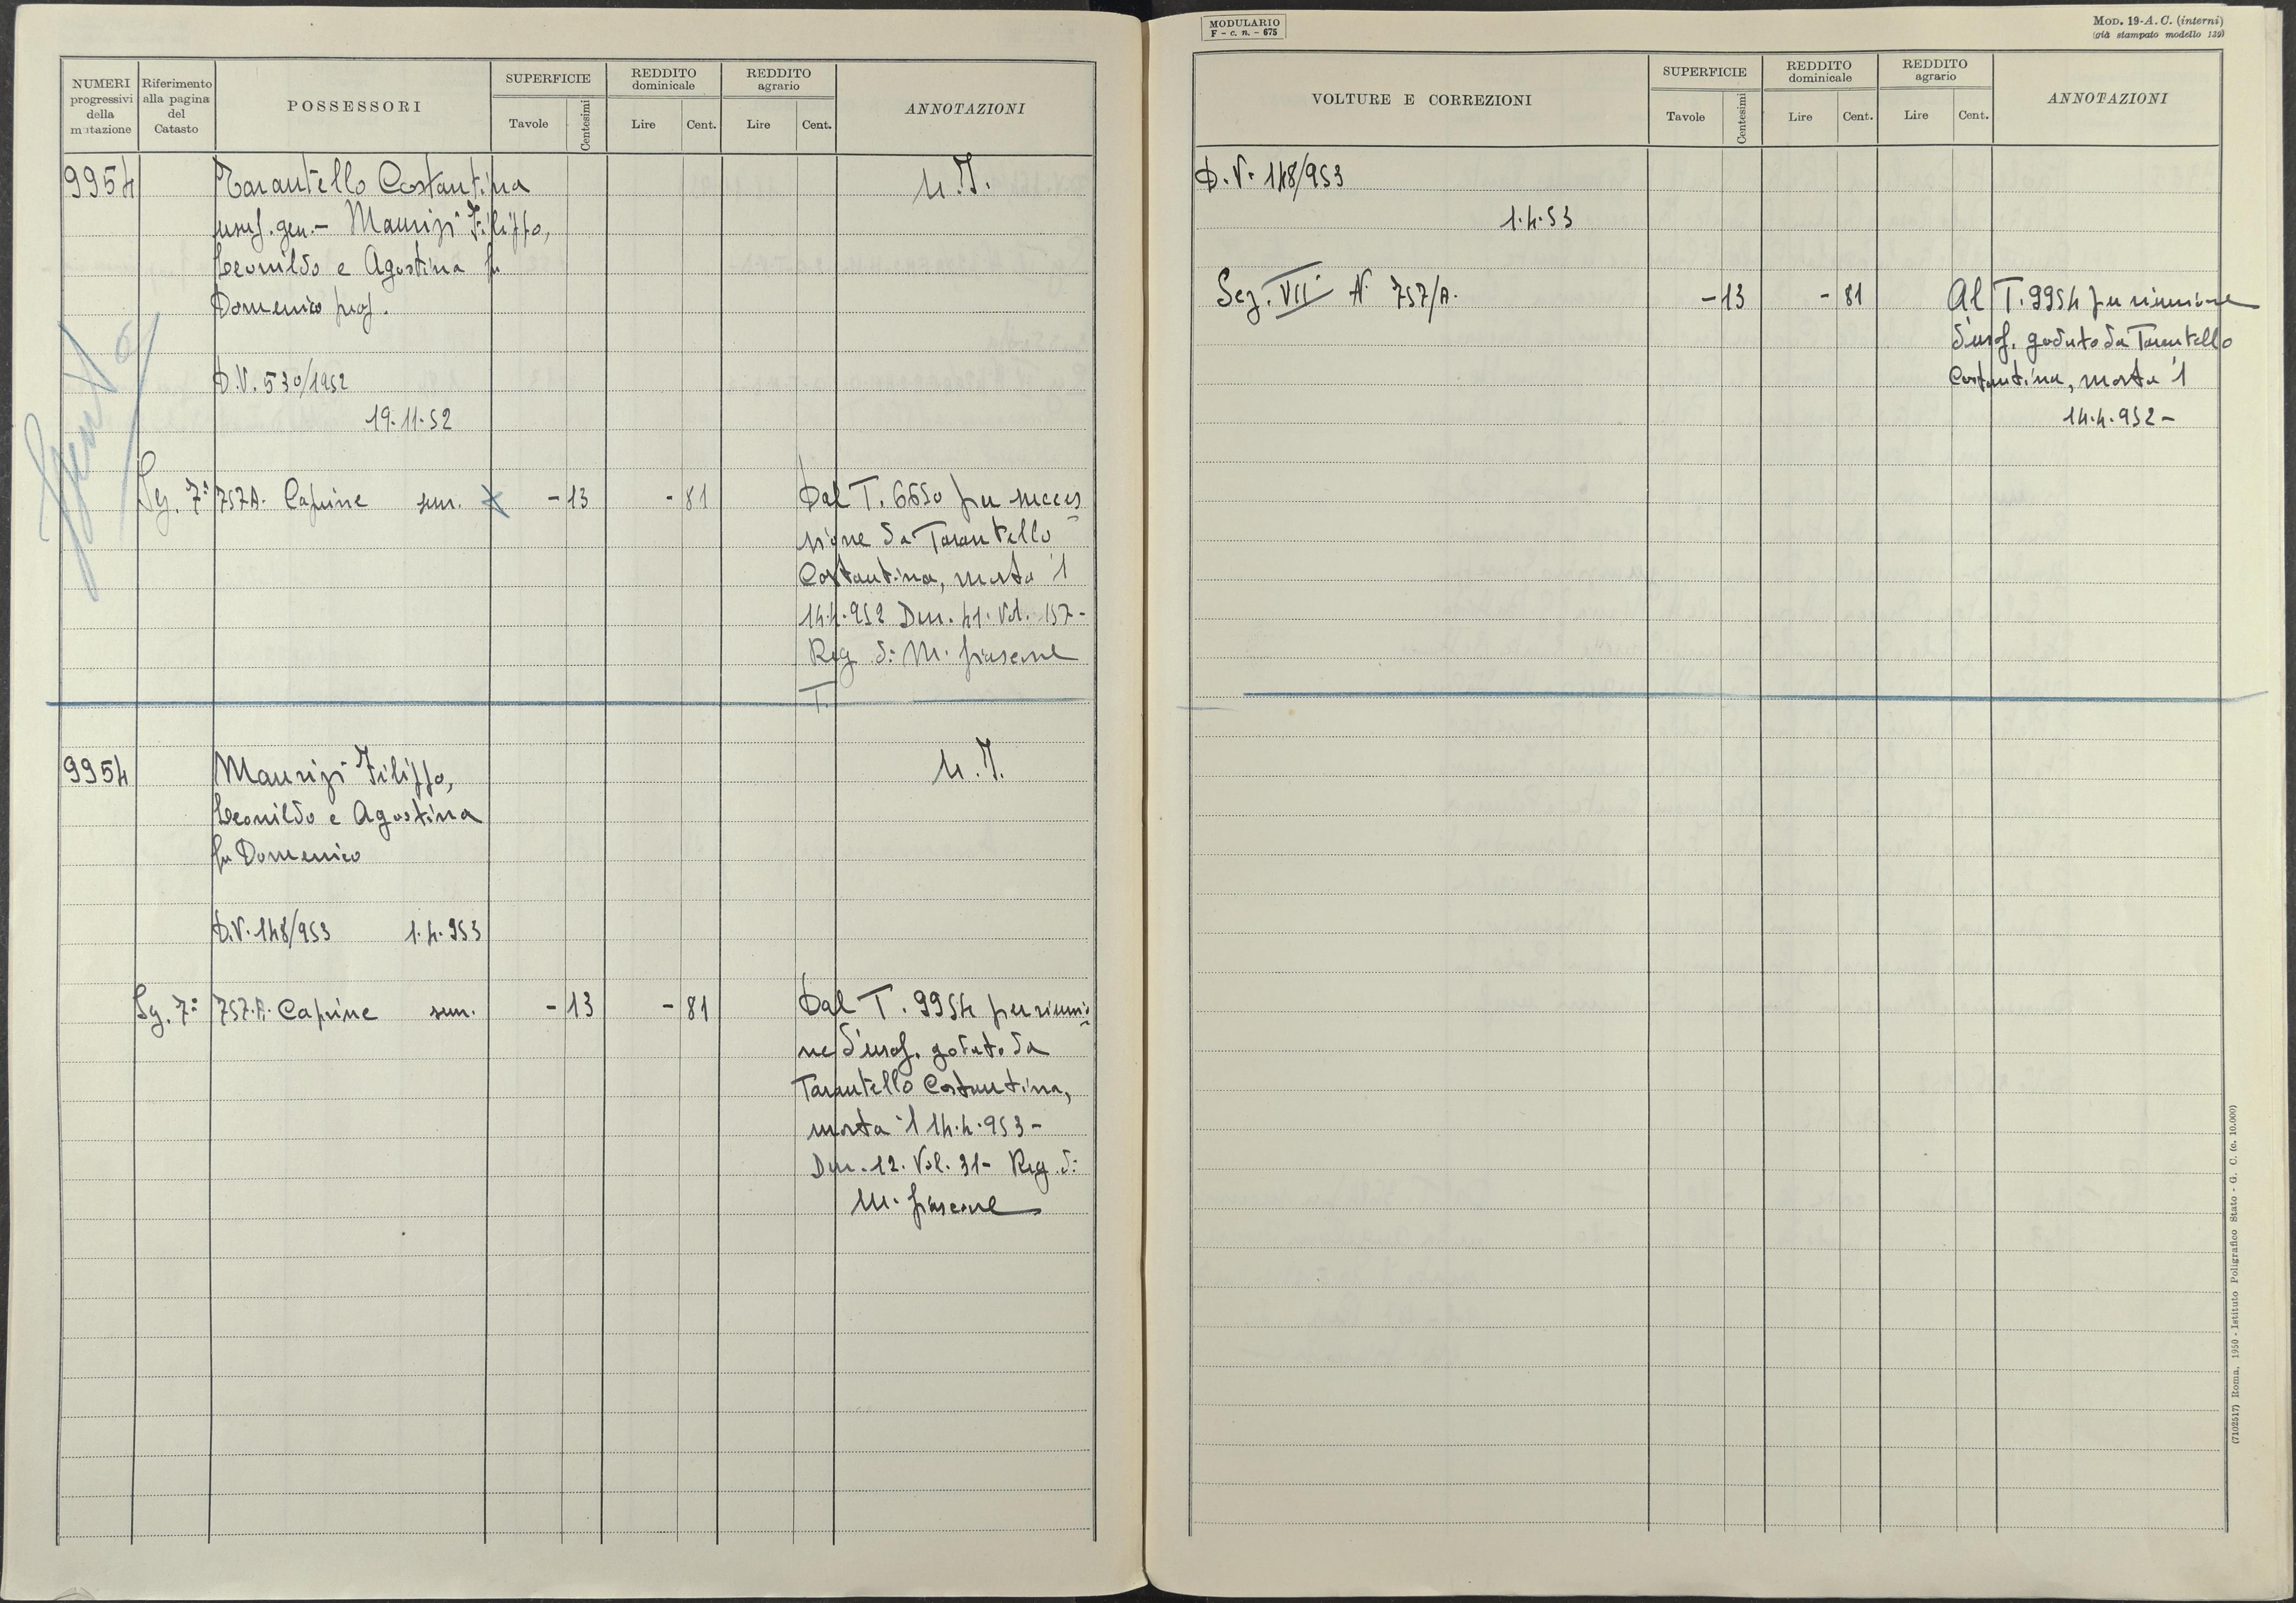 NUMERI progressivi della mutazione
Riferimento alla pagina del Catasto
POSSESSORI
SUPERFICIE
Tavole
Centesimi
REDDITO dominicale
Lire
Cent.
REDDITO agrario
Lire
Cent.
ANNOTAZIONI
9954
Tarantello Costantina
usuf. gen. - Maurizi Filippo,
Leonildo e Agostina fu
Domenico prop.
U.I.
D.V. 530/1952
19.11.52
Sez. 7ª 757A. Caprine sem. - 13 - 81
Dal T. 6650 per succes
sione da Tarantello
Costantina, morta il
14.4.952 Den. 41. Vol. 157-
Reg di M. frascone
T.
9954
Maurizi Filippo,
Leonildo e Agostina
fu Domenico
U.I.
D.V. 148/953 1.4.953
Sez. 7ª 757.A. Caprine sem. - 13 - 81
Dal T. 9954 per riunio
ne d'usuf. goduto da
Tarantello Costantina,
morta il 14.4.953 -
Den. 12. Vol. 31- Reg. di
M. frascone
MODULARIO
F - c. n. - 675
MOD. 19-A. C. (interni)
(già stampato modello 139)
VOLTURE E CORREZIONI
SUPERFICIE
Tavole
Centesimi
REDDITO dominicale
Lire
Cent.
REDDITO agrario
Lire
Cent.
ANNOTAZIONI
D.V. 148/953
1.4.53
Sez. VII N. 757/A. - 13 - 81
Al T. 9954 per riunione
d'usuf. goduto da Tarantello
Costantina, morta il
14.4.952 -
(7102517) Roma, 1950 - Istituto Poligrafico Stato - G. C. (c. 10.000)